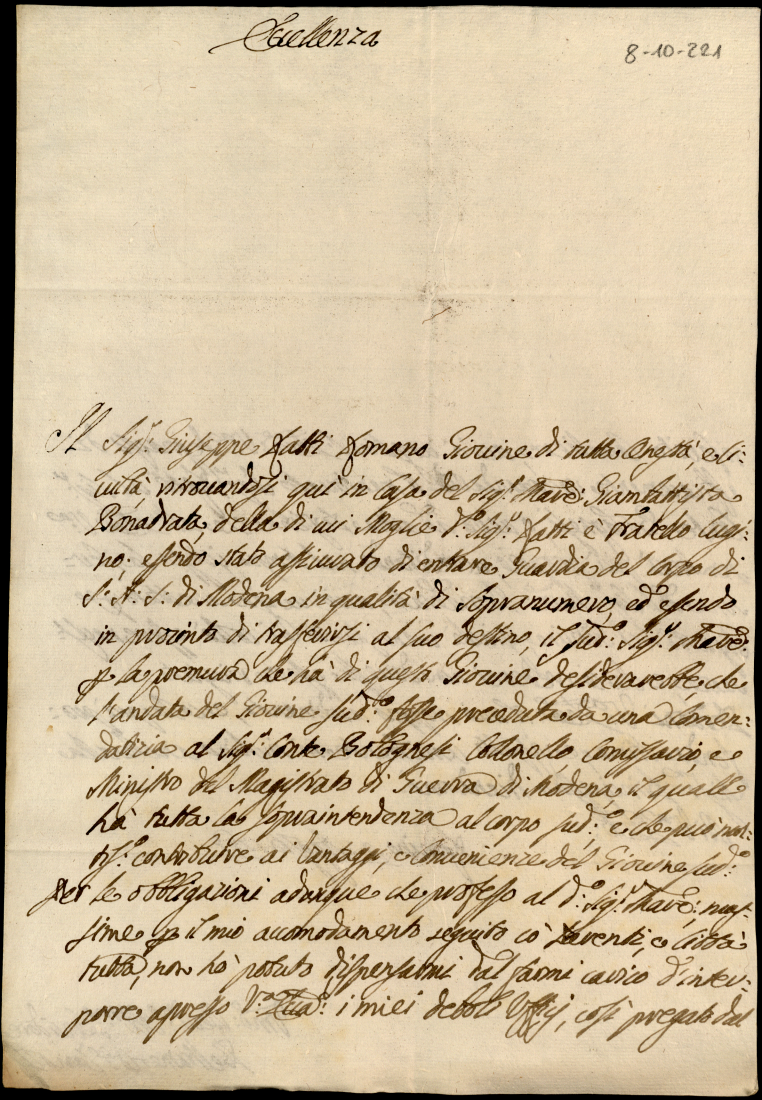 Eccellenza
8-10-221
Il Sig.r Giuseppe Fatti Romano Giovine di tutta Onestà, e Ci:
viltà, ritrovandosi qui in Casa del Sig.r Giambattista
Bonadrata, della di cui Moglie d.o Sig.r Fatti è Fratello Cugi:
no; essendo stato assicurato di entrare Guardia del Corpo di
S: A: S: di Modena in qualità di Sopranumero, ed essendo
in procinto di trasferirsi al suo destino, il sud.o Sig.r
p la premura che hà di questi Giovine desiderarebbe, che
l'andata del Giovine sud.o fosse preceduta da una Comen:
datizia al Sig.r Conte Bolognesi Colonello, Comissario, e
Ministro del Magistrato di Guerra di Modena, il quale
hà tutta la sopraintendenza al corpo sud.o e che può
contribuire ai Vantaggi, e Convenienze del Giovine sud.o
Per le obbligazioni adunque che professo al d.o Sig.r mas:
sime p il mio accomodamento seguito cò Parenti, e Città
tutta, non hò potuto dispensarmi dal farmi carico d'inter:
porre apresso V.a i miei deboli Ufficij, così pregato dal